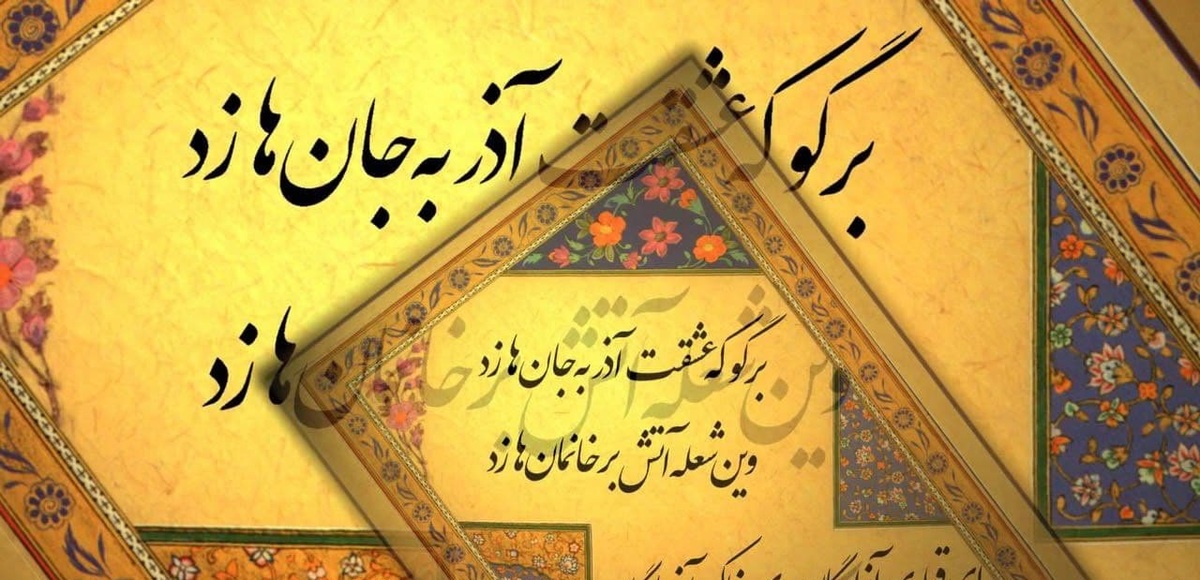 بر گو که عشقت آذر به جان ها زد
وین شعله آتش بر خانمان ها زد
بر گو که عشقت آذر به جان ها زد
وین شعله آتش بر خانمان ها زد